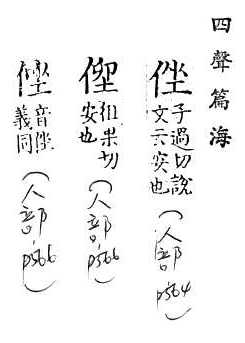 四聲篇海
侳 子過切說
文云安也
(人部,p564)
徂果切
安也
(人部,p566)
音侳
義同
(人部,p566)